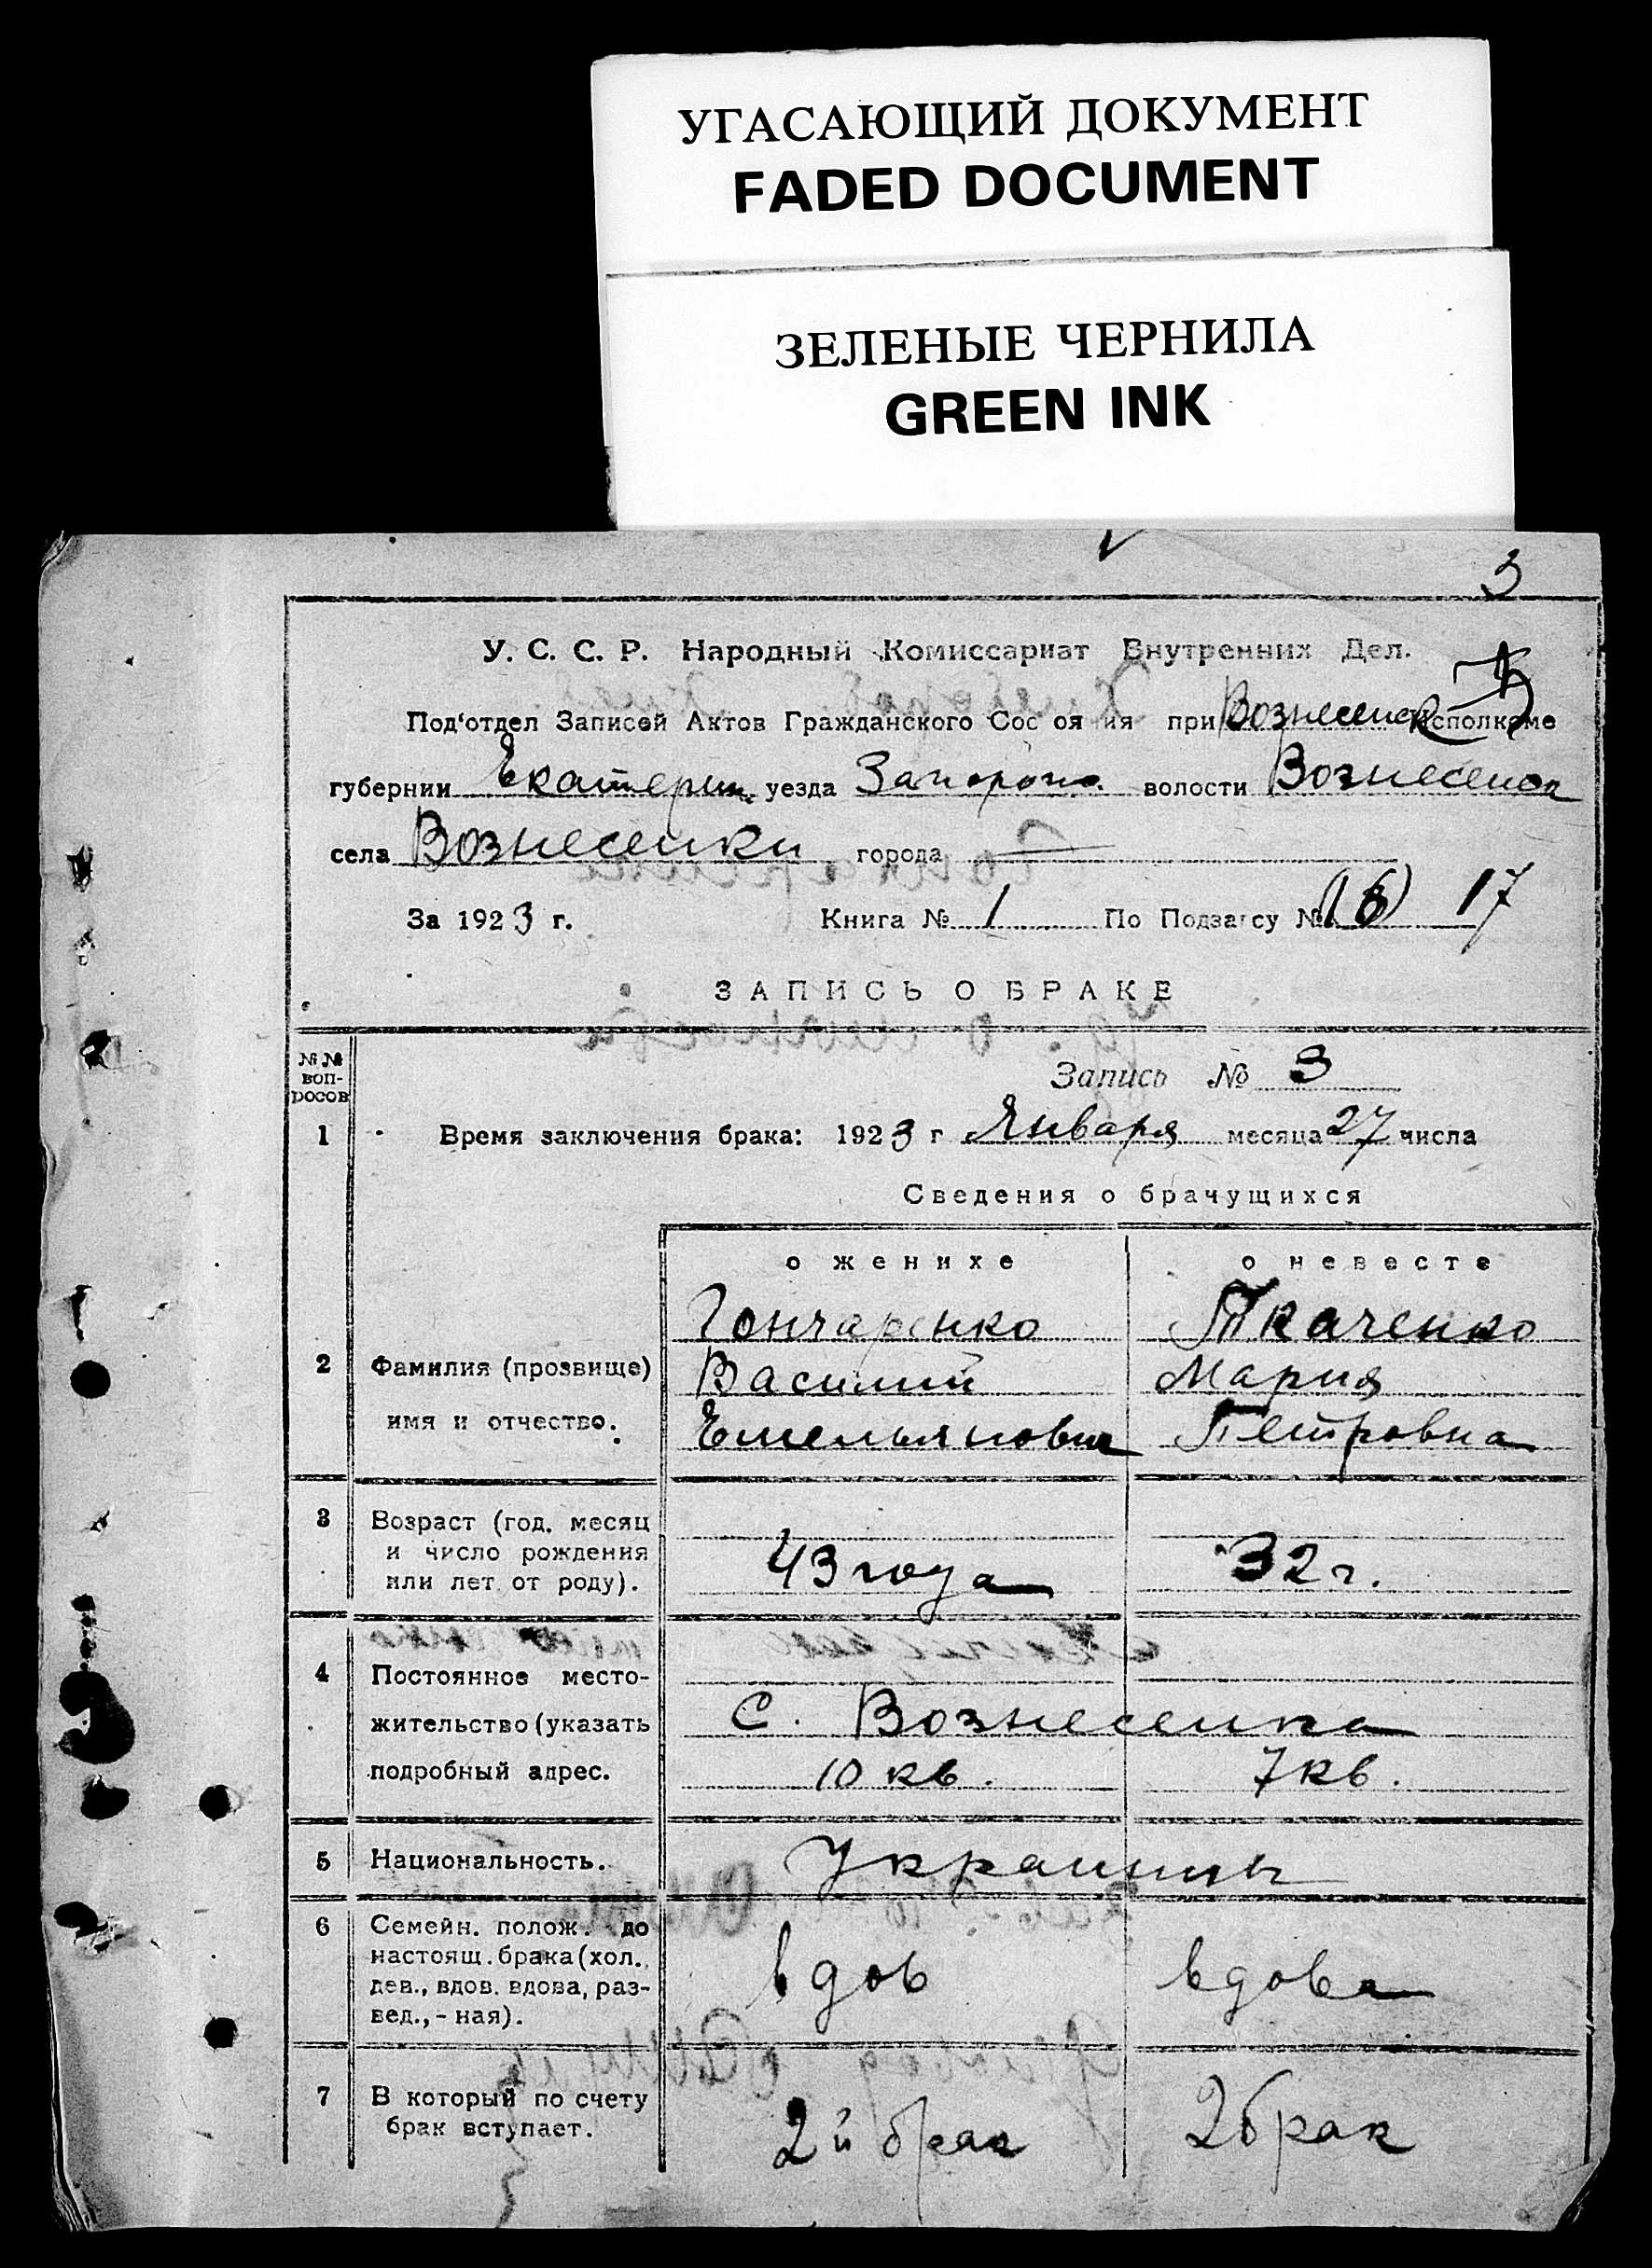 УГАСАЮЩИЙ ДОКУМЕНТ
FADED DOCUMENT
ЗЕЛЕНЫЕ ЧЕРНИЛА
GREEN INK
3
У. С. С. Р. Народный Комиссариат Внутренних Дел.
Под'отдел Записей Актов Гражданского Сос оя ия при Вознесенск исполкоме
губернии Екатерин. уезда Запорож. волости Вознесенск
села Вознесенки города —
За 1923 г. Книга № 1 По Подзагсу № (16) 17
ЗАПИСЬ О БРАКЕ
№№ воп-
росов
Запись № 3
1 Время заключения брака: 1923 г Января месяца 27 числа
Сведения о брачущихся
о женихе о невесте
Гончаренко Ткаченко
2 Фамилия (прозвище) Василий Мария
имя и отчество. Емельянович Петровна
3 Возраст (год. месяц
и число рождения
или лет от роду). 43 года 32 г.
4 Постоянное место-
жительство (указать с. Вознесенка
подробный адрес. 10 кв. 7 кв.
5 Национальность. Украинцы
6 Семейн. полож. до
настоящ. брака (хол.,
дев., вдов. вдова, раз-
вед., - ная). вдов вдова
7 В который по счету
брак вступает. 2й брак 2 брак